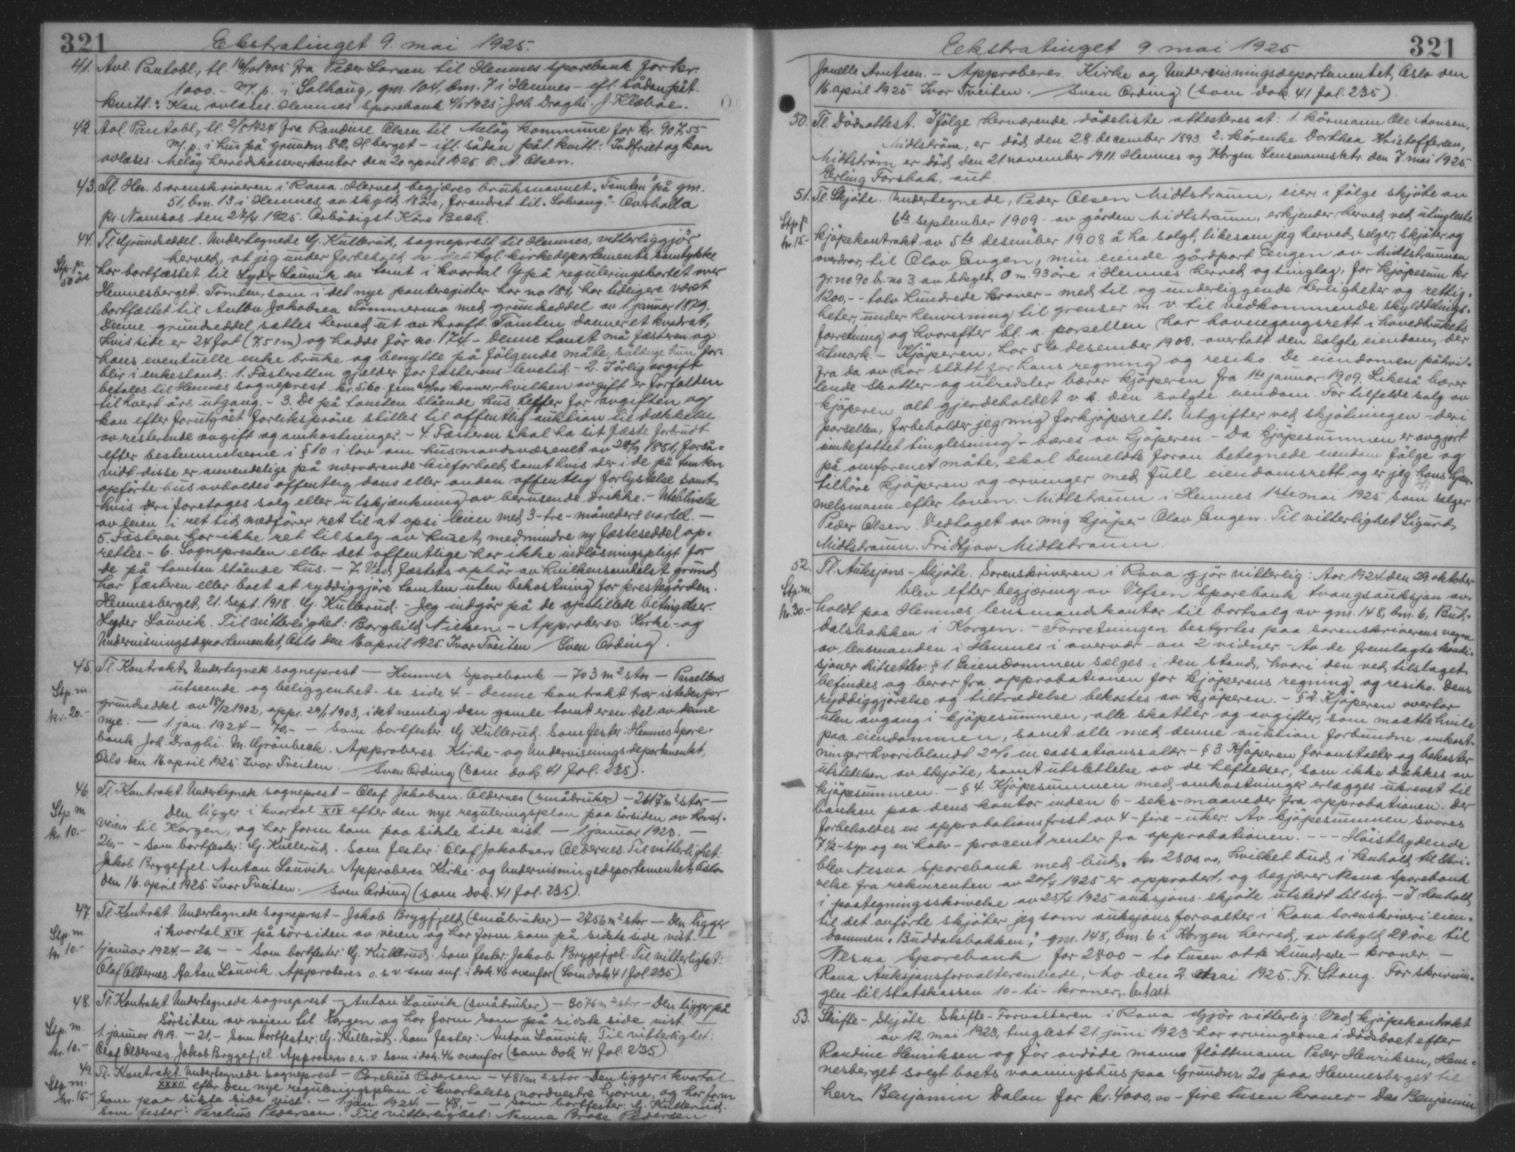 321
Ekstratinget 9. mai 1925.
41. Avl. Pantobl., tl. 16/10 1905 fra Peder Larsen til Hemnes Sparebank for kr.
1000.- m. p. i Solhaug, gm. 104, bm. 7 i Hemnes - ifl. sådan påt.
kvitt.: Kan avlæses. Hemnes Sparebank 4/5 1925. Joh. Draghi. J. Klæboe.
42. Avl. Pantobl., tl. 2/5 1924 fra Randine Olsen til Meløy kommune for kr. 907.55
m. p. i hus på grundnr. 82, H.berget - ifl. sådan påt. kvitt.: Indfriet og kan
avlæses. Meløy herredskassererkontor den 20 april 1925. P. A. Olsen.
43. Tl. Herr sorenskriveren i Rana. Herved begjæres bruksnavnet "Tomten" på gm.
51, bm. 13 i Hemnes, av skyld 18 øre, forandret til "Solvang". Overhalla
pr. Namsos den 27/4 1925. Ærbødigst Kåre Beck.
44. Tl. Grundseddel. Undertegnede G. Kullerud, sogneprest til Hemnes, vitterliggjør
herved, at jeg under forbehold av det kgl. kirkedepartements samtykke
Stp. p.
50 øre
har bortfæstet til Lyder Louvik en tomt i kvartal på reguleringskartet over
Hemnesberget. Tomten, som i det nye panteregister har no 184, har tidligere været
bortfæstet til Anton Jakobsen Tømmermo med grundseddel av 1 januar 1879.
Denne grundseddel sættes herved ut av kraft. Tomten danner et kvadrat,
hvis side er 24 fot (7.53 m) og hadde før no. 174 - Denne tomt må fæsteren og
hans eventuelle enke bruke og benytte på følgende måte, sålænge hun for-
blir i enkestand: 1. Fæsteretten gjelder for fæsterens levetid. - 2. Årlig avgift
betales til Hemnes sogneprest kr. 5.60 - fem 60/100 kroner - hvilken avgift er forfalden
til hvert års utgang. - 3. De på tomten stående hus hefter for avgiften og
kan efter forutgåt forliksprøve stilles til offentlig auktion til dækkelse
av resterende avgift og omkostninger. - 4. Fæsteren skal ha sit fæste forbrudt
efter bestemmelserne i § 10 i lov om husmandsvæsenet av 24/9 1851, forså-
vidt disse er anvendelige på nærværende leieforhold, samt hvis der i de på tomten
opførte hus avholdes offentlig dans eller anden offentlig forlystelse samt
hvis der foretages salg eller utskjenkning av berusende drikke. - Uteblivelse
av leien i ret tid medfører ret til at opsi leien med 3 - tre - måneders varsel. -
5. Fæsteren har ikke ret til salg av huset, medmindre ny fæsteseddel op-
rettes. - 6. Sognepresten eller det offentlige har ikke indløsningspligt for
de på tomten stående hus. - 7. Ved fæstets ophør av hvilkensomhelst grund
har fæsteren eller boet at ryddiggjøre tomten uten bekostning for prestegården.
Hemnesberget, 21. sept. 1918. G. Kullerud. Jeg indgår på de opstillede betingelser.
Lyder Louvik. Til vitterlighet: Borghild Nielsen. - Approberes. Kirke- og
Undervisningsdepartementet, Oslo den 16 april 1925. Ivar Tveiten / Sven Ording.
45. Tl. Kontrakt. Undertegnede sogneprest - Hemnes Sparebank - 703 m² stor - Parsellens
Stp. m.
kr. 20.-
utseende og beliggenhet se side 4 - denne kontrakt trær istedenfor
grundseddel av 18/12 1902, appr. 29/1 1903, idet nemlig den gamle tomt er en del av denne
nye. - 1 jan. 1924 - 70,- - Som bortfester: G. Kullerud. Som fester: Hemnes Spare-
bank Joh. Draghi. M. Grønbech. Approberes. Kirke- og Undervisningsdepartementet,
Oslo den 16 april 1925. Ivar Tveiten. / Sven Ording (som dok. 41 fol. 235).
46. Tl. Kontrakt. Undertegnede sogneprest - Olaf Jakobsen Oldernes (småbruker) - 2617 m² stor -
Stp. m.
kr. 10.-
Den ligger i kvartal XIX efter den nye reguleringsplan paa sørsiden av hoved-
veien til Korgen, og har form som paa sidste side vist - 1 januar 1923. -
26,- - Som bortfester: G. Kullerud. Som fester: Olaf Jakobsen Oldernes. Til vitterlighet:
Jakob Bryggefjel. Anton Louvik. Approberes. Kirke- og Undervisningsdepartementet, Oslo
den 16. april 1925. Ivar Tveiten. / Sven Ording (som dok. 41 fol. 235).
47. Tl. Kontrakt. Undertegnede sogneprest - Jakob Bryggfjeld (småbruker) - 2756 m² stor - Den ligger
Stp. m
kr 10.-
i kvartal XIX på sørsiden av veien og har form som på sidste side vist. -
1 januar 1924 - 26 - - Som bortfester: G. Kullerud. Som fester: Jakob Bryggefjel. Til vitterlighet:
Olaf Oldernes, Anton Louvik. Approberes o. s. v. som anf. i dok. 46 ovenfor (som dok 41 fol. 235)
48. Tl. Kontrakt. Undertegnede sogneprest - Anton Louvik (småbruker) - 3076 m² stor - Den ligger på
Stp. m.
kr. 10.-
sørsiden av veien til Korgen og har form som på sidste side vist -
1 januar 1919. - 21,- Som bortfester: G. Kullerud. Som fester: Anton Louvik. Til vitterlighet:
Olaf Oldernes. Jakob Bryggefjel. Approberes o. s. v. som i dok. 46 ovenfor (som dok 41 fol. 235)
49. Tl. Kontrakt. Undertegnede sogneprest - Parelius Pedersen - 481 m² stor - Den ligger i kvartal
Stp. m.
kr. 15.-
XXXII efter den nye reguleringsplan i kvartalets nordvestre hjørne, og har form
som paa sidste side vist. - 1 jan 1924. - 48,- - Som bortfester: G. Kullerud.
Som fester: Parelius Pedersen. Til vitterlighet: Nanna Pedersen.
321
Ekstratinget 9 mai 1925
Janelle Arntsen. - Approberes. Kirke og Undervisningsdepartementet, Oslo den
16. april 1925. Ivar Tveiten. / Sven Ording (som dok. 41 fol. 235).
50. Tl. Dødsattest. Ifølge herværende dødsliste attesteres at: 1. kårmann Ole Monsen,
Midtstrøm, er død den 28. december 1893. 2. kårenke Dorthea Kristoffersen,
Midtstrøm er død den 21 november 1911. Hemnes og Korgen Lensmannsktr. den 7 mai 1925
Erling Forsbak. aut
51. Tl. Skjøte. Undertegnede, Peder Olsen Midtstraum, eier i følge skjøte av
Stp. p.
kr. 15.-
6te september 1909 av gården Midtstraum, erkjender herved ved utinglæste
kjøpekontrakt av 5te desember 1908 å ha solgt, likesom jeg herved selger, skjøter og
overdrar, til Olav Engen, min eiende gårdpart Engen av Midtstraumen
gr. no 90 b. no 3 av skyld 0 m. 93 øre i Hemnes herred og tinglag, for kjøpesum kr.
1200,- - tolv hundrede kroner - med til og underliggende herligheter og rettig-
heter, under henvisning til grenser m. v. til vedkommende skylddelings-
forretning og hvorefter bl. a. parsellen har havnegangsrett i hovedbrukets
utmark. - Kjøperen har 5te desember 1908. overtatt den solgte eiendom, der
fra da av har stått for hans regning og resiko. De eiendommen påhvi-
lende skatter og utredsler bærer kjøperen fra 1ste januar 1909. Likeså bærer
kjøperen alt gjerdeholdet v. k. den solgte eiendom. For tilfelde salg av
parsellen, forbeholder jeg mig forkjøpsrett. Utgifter ved skjøtningen - deri
innbefattet tinglesning - bæres av kjøperen - Da kjøpesummen er avgjort
på omforenet måte, skal bemeldte foran betegnede eiendom følge og
tilhøre kjøperen og arvinger med full eiendomsrett og er jeg hans hjem-
melsmann efter loven. Midtstraum i Hemnes 1ste mai 1925 som selger
Peder Olsen. Vedtaget av mig kjøper Olav Engen. Til vitterlighet Sigurd
Midtstraum. Fridtjov Midtstraum.
52. Tl. Auksjons-Skjøte. Sorenskriveren i Rana gjør vitterlig: Aar 1924 den 29. oktober
Stp. m.
kr. 30.-
blev efter begjæring av Vefsen Sparebank tvangsauksjon av-
holdt paa Hemnes lensmandskontor til bortsalg av gm. 148, bm. 6, Bud-
dalsbakken i Korgen. - Forretningen bestyrtes paa sorenskriverens vegne
av lensmanden i Hemnes i overvær av 2 vidner. Av de fremlagte kondi-
sjoner hitsettes: § 1. Eiendommen sælges i den stand, hvori den ved tilslaget
befindes og beror fra approbationen for kjøperens regning og resiko. Dens
ryddiggjørelse og tiltrædelse bekostes av kjøperen. - § 2. Kjøperen overtar
uten avgang i kjøpesummen, alle skatter og avgifter, som maatte hvile
paa eiendommen, samt alle med denne auktion forbundne omkost-
ninger hvoriblandt 2 % in cassationssalær. - § 3 Kjøperen foranstalter og bekoster
utstedelsen av skjøte, samt utslettelse av de heftelser, som ikke dækkes av
kjøpesummen. - § 4. Kjøpesummen med omkostninger erlægges ukrævet til
banken paa dens kontor inden 6 - seks - maaneder fra approbationen. Der
forbeholdes en approbationsfrist av 4 - fire - uker. Av kjøpesummen svares
7½ - syv og en halv - procent renter fra approbationen. - - - Høistbydende
blev Nesna Sparebank med bud kr. 2800,00, hvilket bud i henhold til skri-
velse fra rekvirenten av 20/4 1925 er approbert, og begjærer Nesna Sparebank
i paategningsskrivelse av 25/4 1925 auksjons-skjøte utstedt til sig. - I henhold
til det anførte skjøter jeg som auksjonsforvalter i Rana sorenskriveri eien-
dommen "Buddalsbakken", gm. 148, bm. 6 i Korgen herred, av skyld 29 øre til
Nesna Sparebank for 2800 - to tusen otte hundrede - kroner. -
Rana Auksjonsforvalterembede, Mo den 2. mai 1925. Fr. Stang. For skrivnin-
gen til statskassen 10 - ti - kroner. betalt
53. Skifte-Skjøte. Skifte-Forvalteren i Rana Gjør vitterlig: Ved kjøpekontrakt
av 12. mai 1923, tinglæst 21 juni 1923 har arvingerne i dødsboet efter
Randine Henriksen og før avdøde mann fløttmann Peder Henriksen, Hem-
nesberget solgt boets vaaningshus paa Grundnr. 20 paa Hemnesberget til
herr Benjamin Dalen for kr. 4000,00 - fire tusen kroner - Da Benjamin